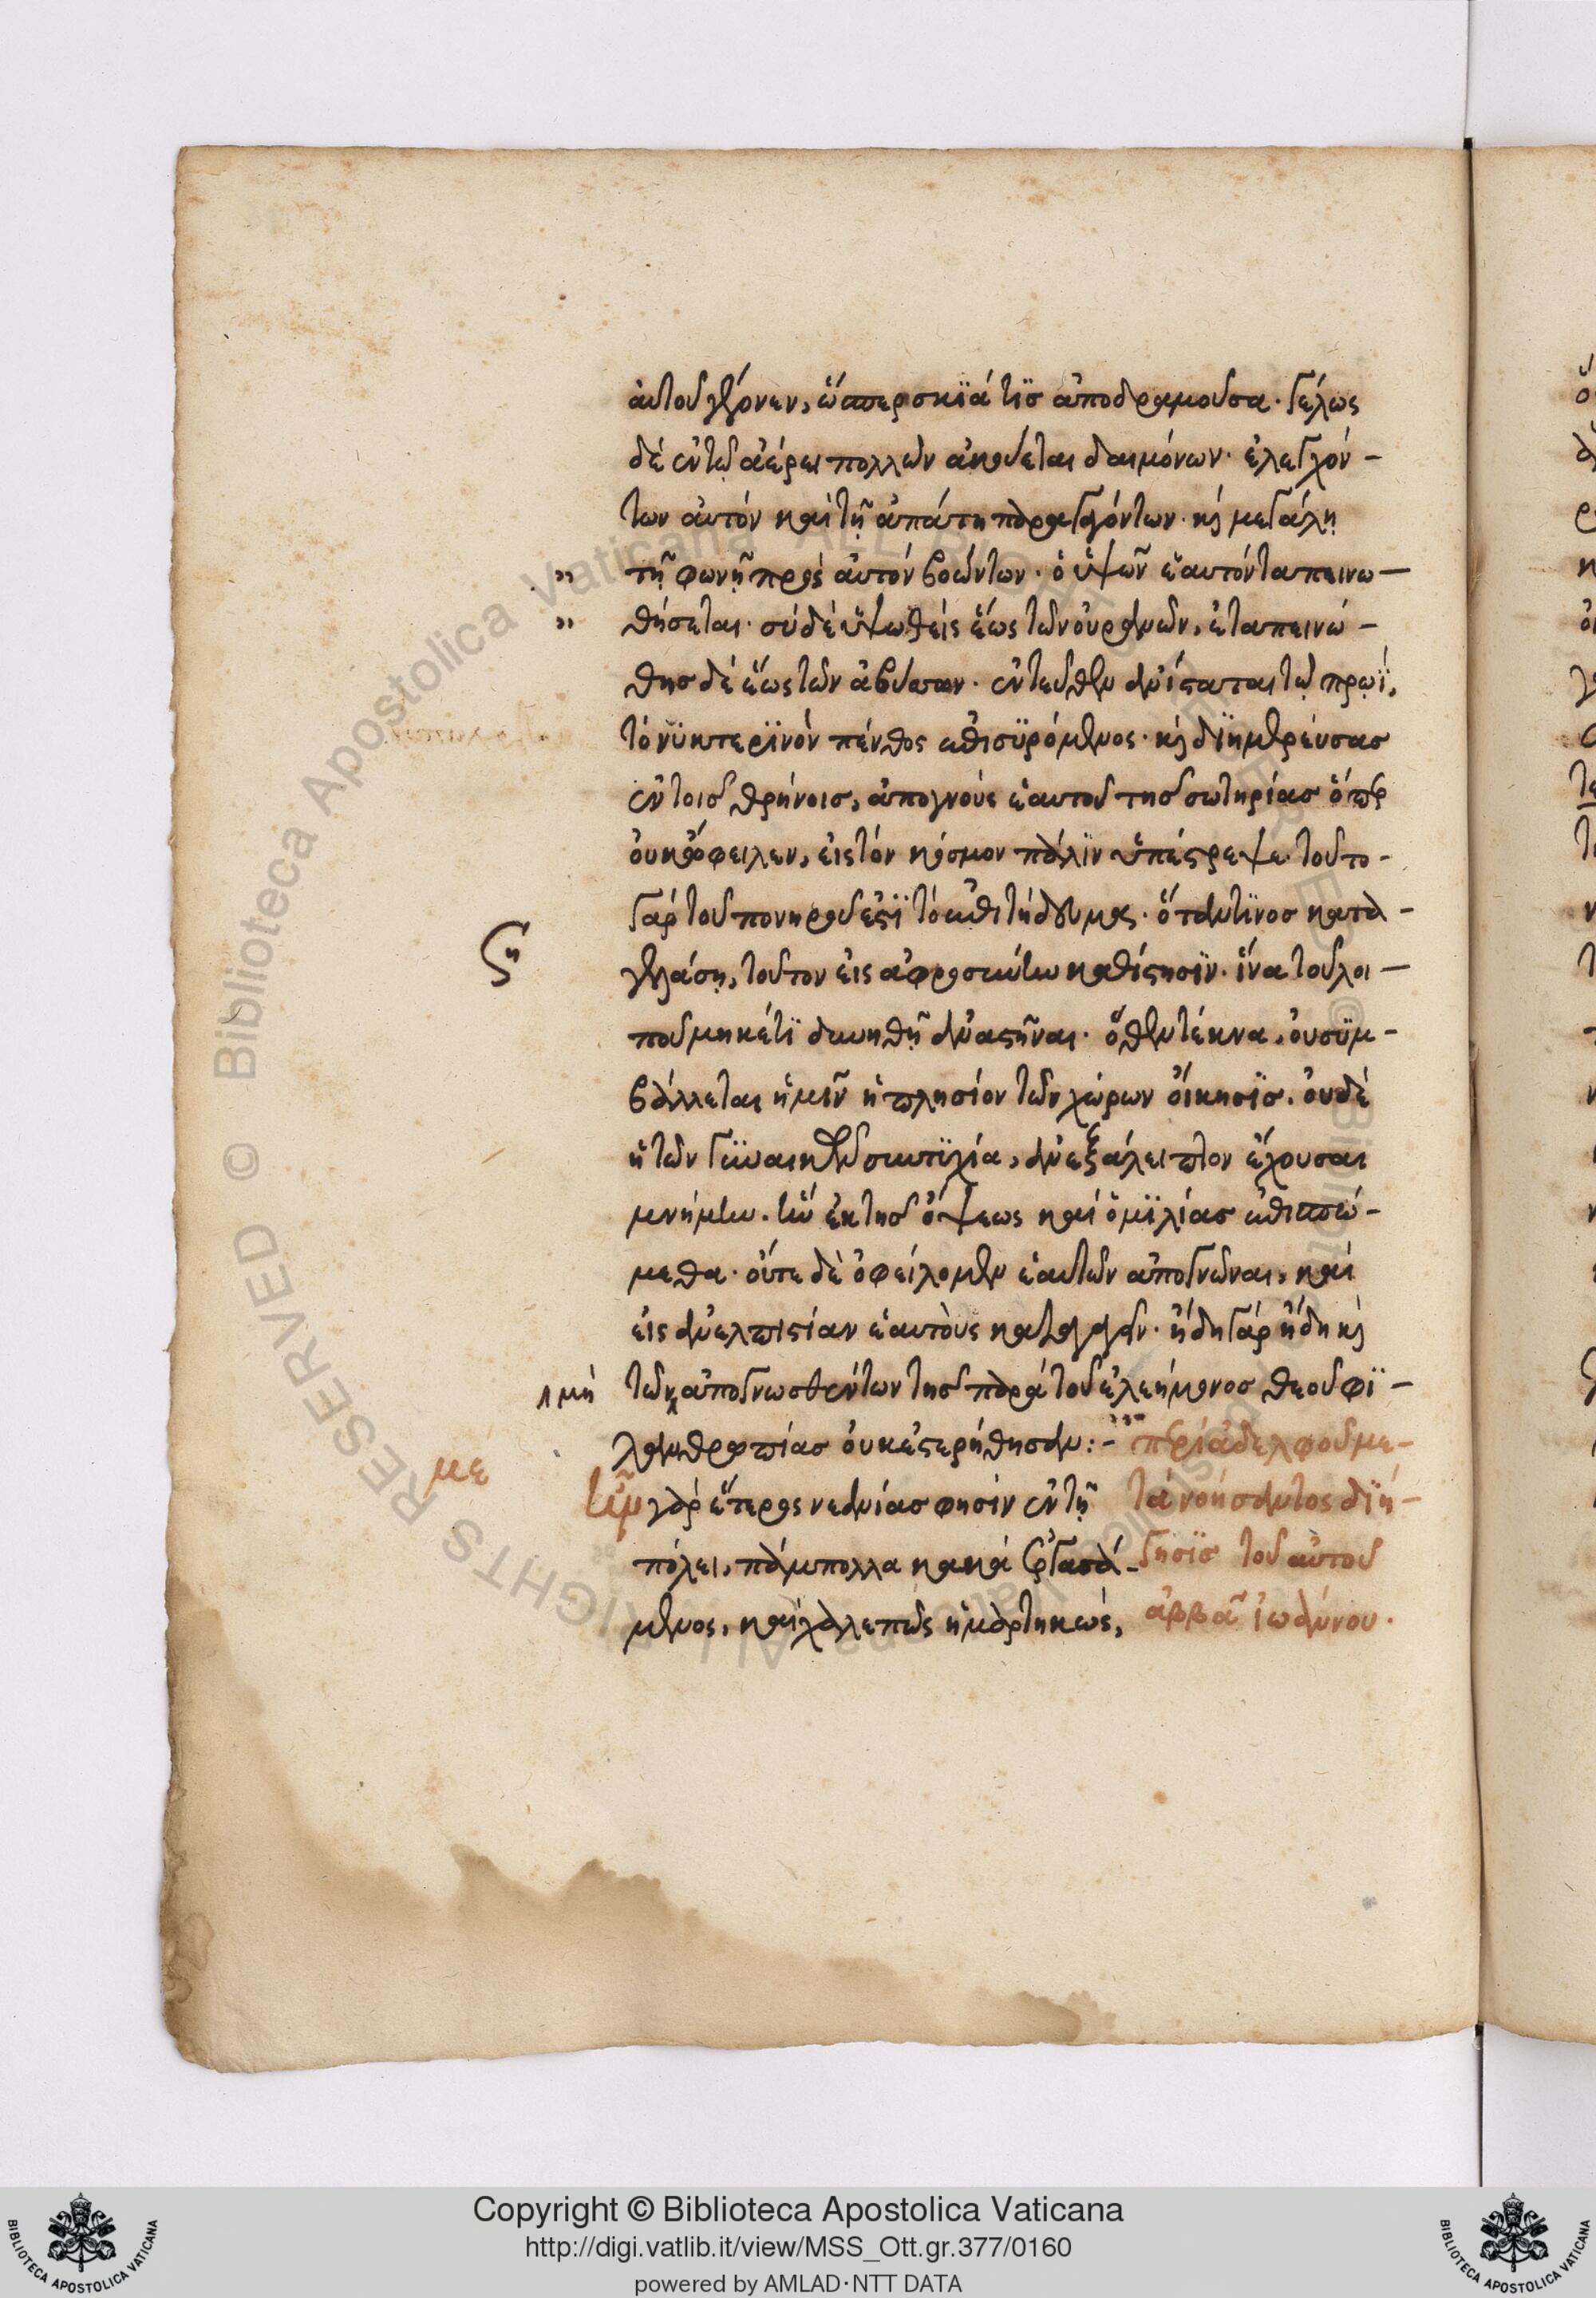 αὐτοῦ γέγονεν, ὥσπερ σκϊά τϊσ ἀποδραμοῦσα· γέλως
δὲ ἐν τῷ ἀέρει πολλῶν ἀκούεται δαιμόνων· ἐλεγχόν-
των αὐτόν καὶ τῇ ἀπάτη παραγαγόντων· κὶ μεγάλη
τῇ φωνῇ πρὸς αὐτόν βοώντων· ὁ ὑψῶν ἑαυτόν ταπεινω-
θήσεται· σύ δὲ ὑψωθείς ἕως τῶν οὐρανῶν, ἐταπεινώ-
θησ δὲ ἕως τῶν ἀβύσσων· ἐντεῦθεν ἀνίσταται τῷ πρωΐ,
τό νϋκτερϊνὸν πένθος ἐπισϋρόμενος· κὶ δϊημερεύσασ
ἐν τοισ θρήνοισ, ἀπογνούς ἑαυτοῦ τησ σωτηρίασ ὅπερ
οὐκ ὄφειλεν, εἰς τόν κόσμον πάλϊν ὑπέστρεψε· τοῦτο
γάρ τοῦ πονηροῦ ἐστϊ τό ἐπιτήδευμα· ὅταν τϊνοσ κατα-
γελάση, τοῦτον εἰς ἀφροσύνην καθίστησϊν· ἵνα τοῦ λοι-
ποῦ μηκέτϊ δυνηθῇ ἀναστῆναι· ὅθεν τέκνα, οὐ σϋμ-
βάλλεται ἡμῖν ἡ πλησίον τῶν χώρων οἴκησϊσ. οὐδὲ
ἡ τῶν γϋναικῶν συντϋχία, ἀνεξάλειπτον ἔχουσαι
μνήμην. ἣν ἐκ τησ ὄψεως καὶ ὁμϊλίασ ἐπισπώ-
μεθα· οὔτε δὲ ὀφείλομεν ἑαυτῶν ἀπογνῶναι, καὶ
εἰς ἀνελπιστίαν ἑαυτοὺς καταγαγεῖν· ἤδη γάρ ἤδη κὶ
μή
τῶν ἀπογνωσθέντων τησ παρά τοῦ ἐλεήμονοσ θεοῦ φϊ-
λανθρωπίασ οὐκ ἐστερήθησαν:- περί ἀδελφοῦ με-
με
Ἦν γάρ ἕτερος νεανίασ φησίν ἐν τῇ τανοήσαντος δϊή-
πόλει, πάμπολλα κακά ἐργασά- γησϊσ τοῦ αὐτοῦ
μενος, καὶ χαλεπῶς ἡμαρτηκώς, ἀββᾶ ἰωάννου.
Copyright © Biblioteca Apostolica Vaticana
http://digi.vatlib.it/view/MSS_Ott.gr.377/0160
powered by AMLAD·NTT DATA
BIBLIOTECA APOSTOLICA VATICANA
BIBLIOTECA APOSTOLICA VATICANA